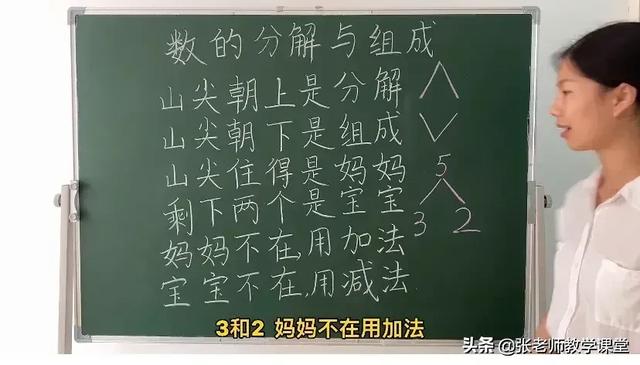 数的分解与组成
山尖朝上是分解
山尖朝下是组成
山尖住得是妈妈
剩下两个是宝宝
妈妈不在,用加法
宝宝不在,用减法
5
3 2
3和2 妈妈不在用加法
头条 @张老师教学课堂